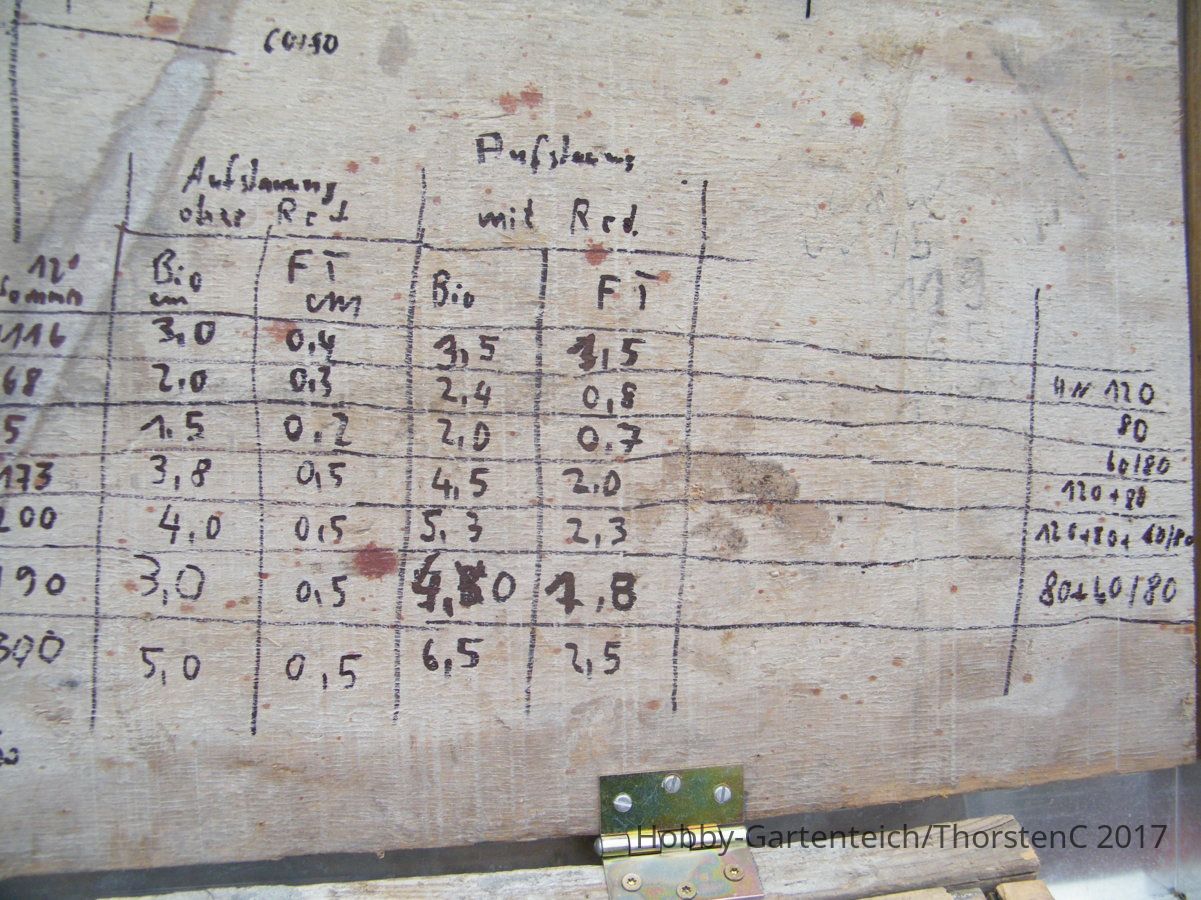 60/80
Aufstauung
Aufstauung
ohne Red.
mit Red.
12"
Bio FT Bio FT
cm cm
116 3,0 0,4 3,5 1,5
68 2,0 0,3 2,4 0,8 HN 120
5 1,5 0,2 2,0 0,7 80
173 3,8 0,5 4,5 2,0 60/80
200 4,0 0,5 5,3 2,3 120+80
190 3,0 0,5 0 1,8 120+80+60/80
300 5,0 0,5 6,5 2,5 80+60/80
Hobby-Gartenteich/ThorstenC 2017